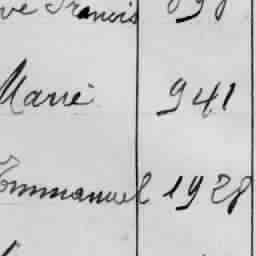 ve Francis 898
Marié 941
Emmanuel 1928